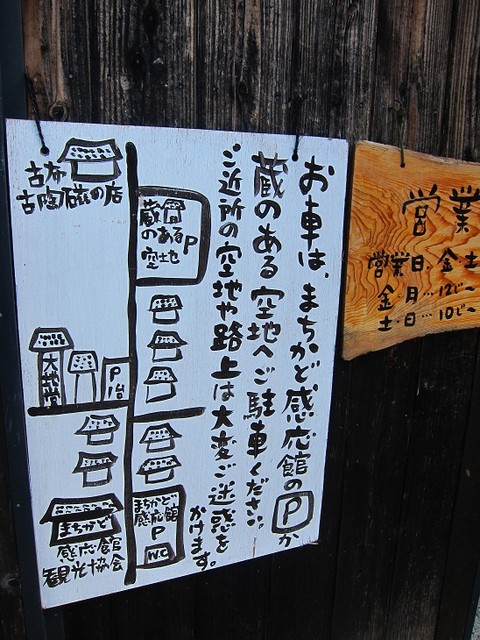 お車は、まちかど感応館のPか
蔵のある空地へご駐車ください。
ご近所の空地や路上は大変ご迷惑を
かけます。
古布
古陶磁の店
蔵のあるP
空地
P
まちかど
感応館
P
W.C
まちかど
感応館
観光協会
営業
営業日 金土
金・月…12じ〜
土・日…10じ〜